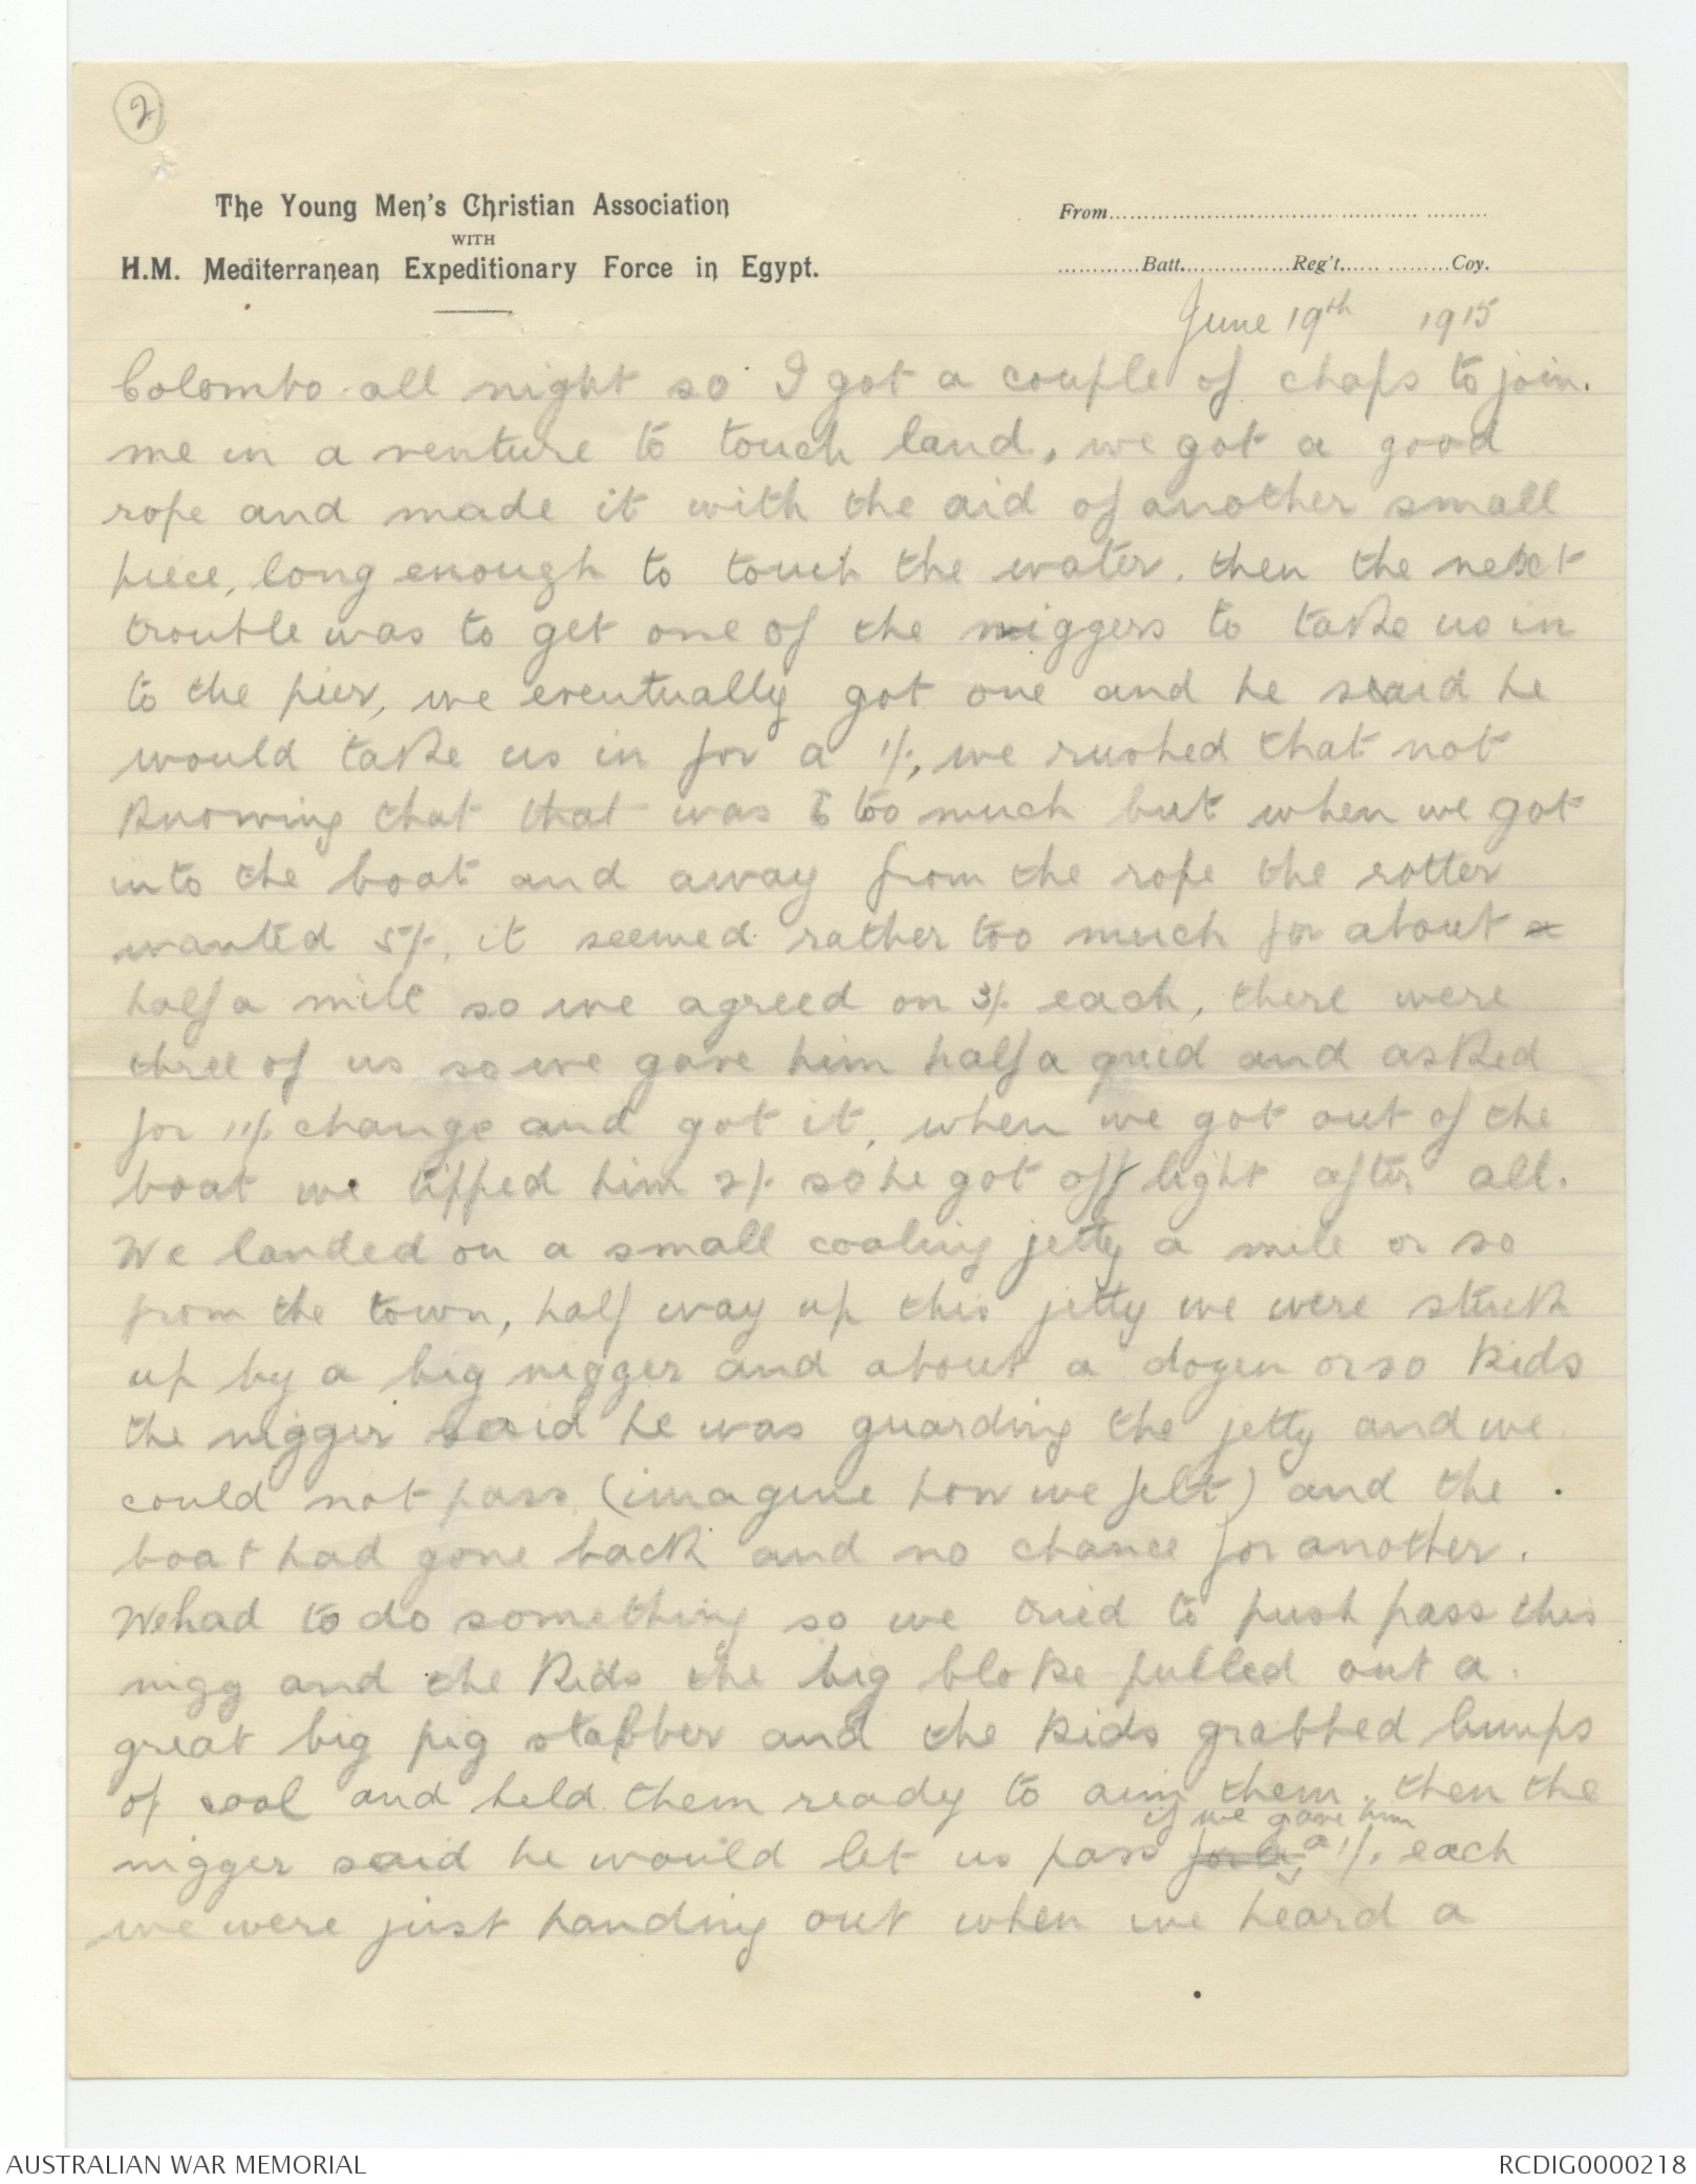 2
The Young Men's Christian Association
WITH
H.M. Mediterranean Expeditionary Force in Egypt.
From..............................
............Batt................Reg't...............Coy.
June 19th 1915
Colombo all night so I got a couple of chaps to join
me in a venture to touch land, we got a good
rope and made it with the aid of another small
piece, long enough to touch the water. then the next
trouble was to get one of the niggers to take us in
to the pier, we eventually got one and he said he
would take us in for a 1/-, we rushed that not
knowing that that was too much but when we got
into the boat and away from the rope the rotter
wanted 5/-, it seemed rather too much for about a
half a mile so we agreed on 3/- each, there were
three of us so we gave him half a quid and asked
for 11/- change and got it, when we got out of the
boat we tipped him 2/- so he got off light after all.
We landed on a small coaling jetty a mile or so
from the town, half way up this jetty we were stuck
up by a big nigger and about a dozen or so kids
the nigger said he was guarding the jetty and we
could not pass (imagine how we felt) and the
boat had gone back and no chance for another.
We had to do something so we tried to push pass this
nigg and the kids the big bloke pulled out a
great big pig stabber and the kids grabbed lumps
of coal and held them ready to aim them, then the
if we gave him
nigger said he would let us pass for a a 1/- each
we were just handing out when we heard a
AUSTRALIAN WAR MEMORIAL
RCDIG0000218